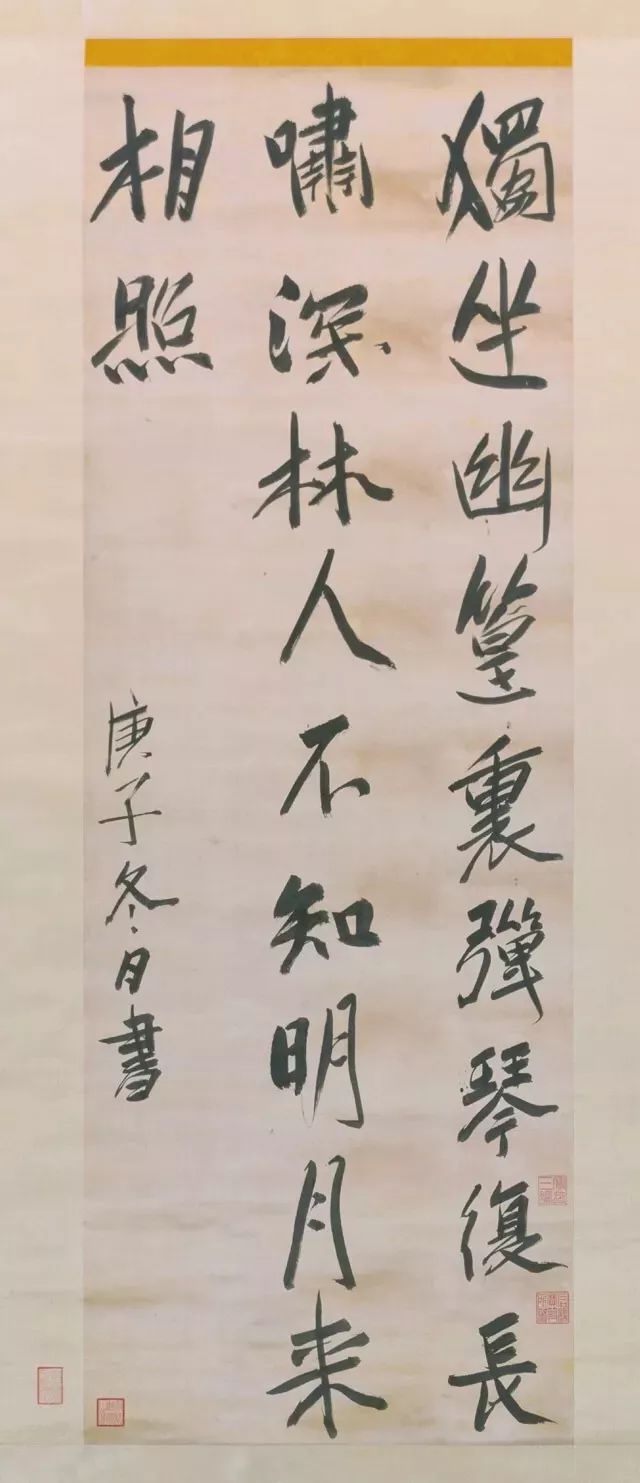 獨坐幽篁裏彈琴復長
嘯深林人不知明月来
相照
庚子冬月書